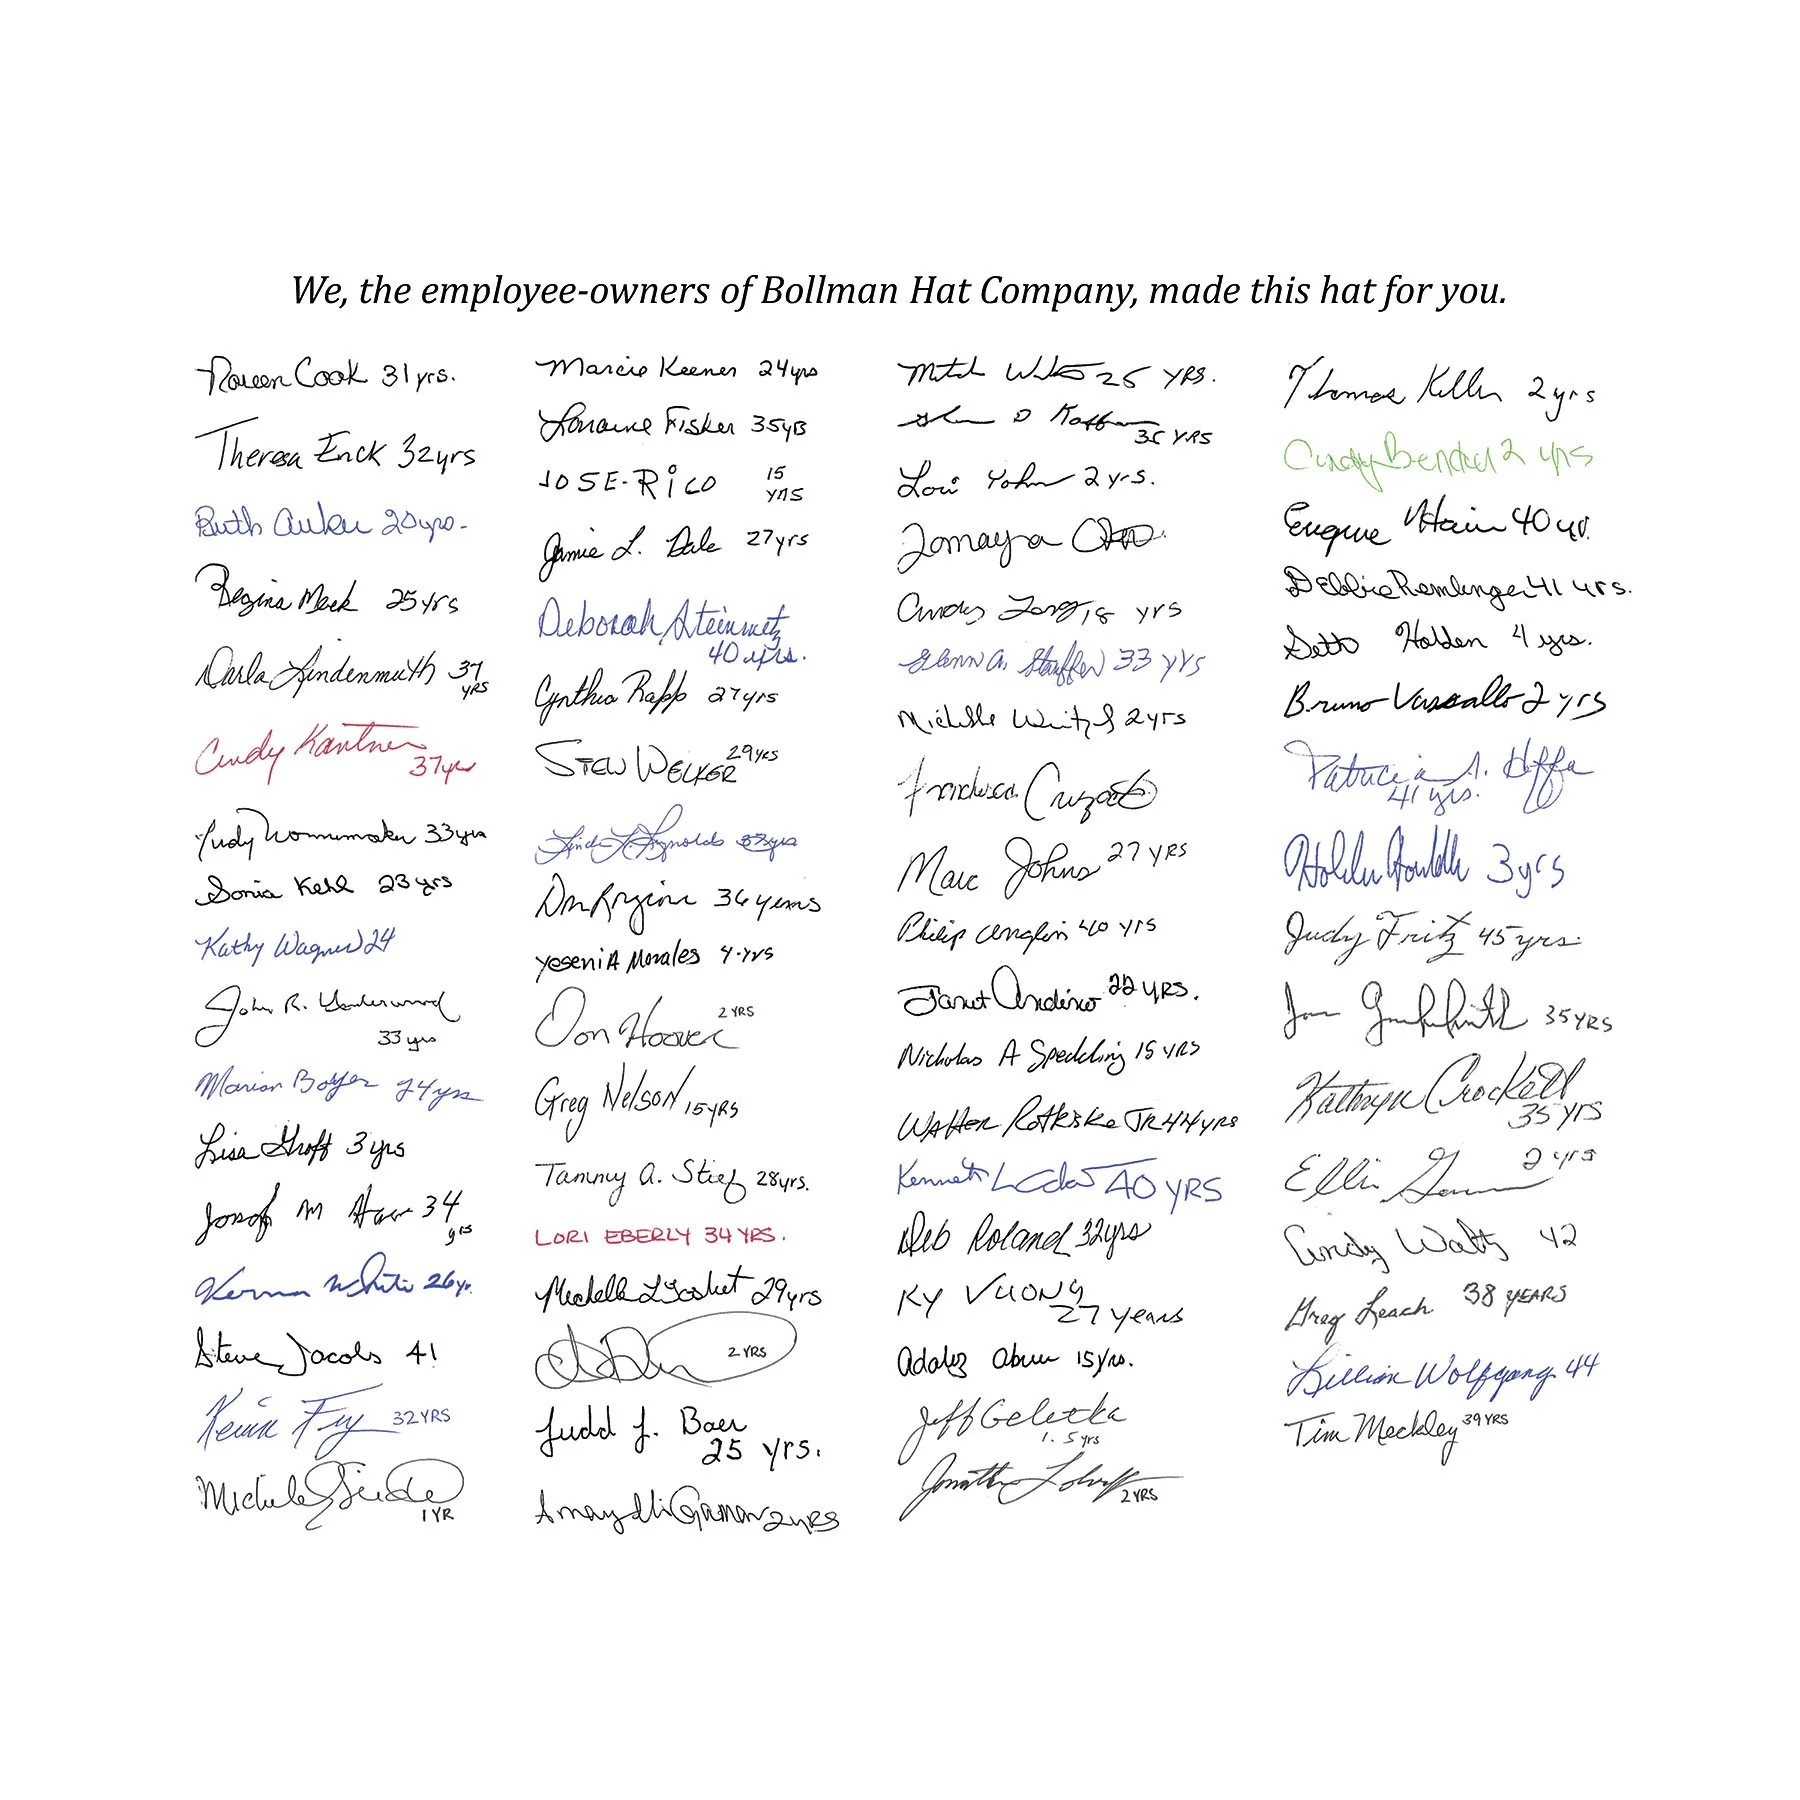 We, the employee-owners of Bollman Hat Company, made this hat for you.
Noreen Cook 31 yrs.
Theresa Enck 32 yrs
Ruth Auker 20 yrs.
Regina Meck 25 yrs
Darla Lindenmuth 37
YRS
Cindy Kantner
37 yrs
Judy Wonnemaker 33 yrs
Sonia Kehl 23 yrs
Kathy Wagner 24
John R. Underwood
33 yrs
Marian Boyer 24 yrs
Lisa Groff 3 yrs
M 34
yrs
White 26 yr.
Steve Jacobs 41
Kevin Fry 32 YRS
Michele
1 YR
Marcie Keener 24 yrs
Lorraine Fisker 35 yrs
JOSE-RICO 15
YRS
Jamie L. Dale 27 yrs
Deborah Steinmetz
40 yrs.
Cynthia Rapp 27 yrs
STEW WELKER 29 YRS
Linda L. Reynolds 33 yrs
36 years
YeseniA Morales 4 yrs
Don Hoover 2 YRS
Greg Nelson 15 YRS
Tammy A. Stief 28 yrs.
LORI EBERLY 34 YRS.
Michelle L 29 yrs
2 YRS
Judd J. Baer
25 yrs.
Amaydli Roman 2 yrs
Mitch 25 YRS.
D
35 YRS
Lori Yohn 2 yrs.
Jomayra
Cindy 18 yrs
Glenn A. Stauffer 33 yrs
Michelle Weitzel 2 yrs
Francisca Cruzado
Marc Johns 27 YRS
Philip Anglin 40 yrs
Janet Andino 22 YRS.
Nicholas A Spedding 15 YRS
Walter Rotkiske JR 44 yrs
Kenneth 40 YRS
Deb Roland 32 yrs
KY VUONG
27 years
Adalez Abreu 15 yrs.
Jeff Geletka
1.5 yrs
Jonathan
2 YRS
Thomas Keller 2 yrs
Cindy Bendul 2 yrs
Eugene Hain 40 yr.
Debbie Remlinger 41 yrs.
Seth Holden 4 yrs.
Bruno Vassallo 2 yrs
Patricia A. Heffa
41 yrs.
Holden 3 yrs
Judy Fritz 45 yrs.
35 YRS
Kathryn Crockett
35 yrs
2 yrs
Cindy Waltz 42
Greg Leach 38 YEARS
Lillian Wolfgang 44
Tim Meckley 39 YRS